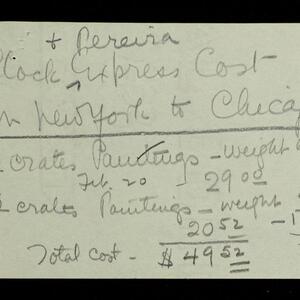 + Pereira
lock Express Cost
New York to Chica
crates Paintings - weight
Feb. 20 - 29 00
crates Paintings - weight
20 52
Total cost - $ 49 52